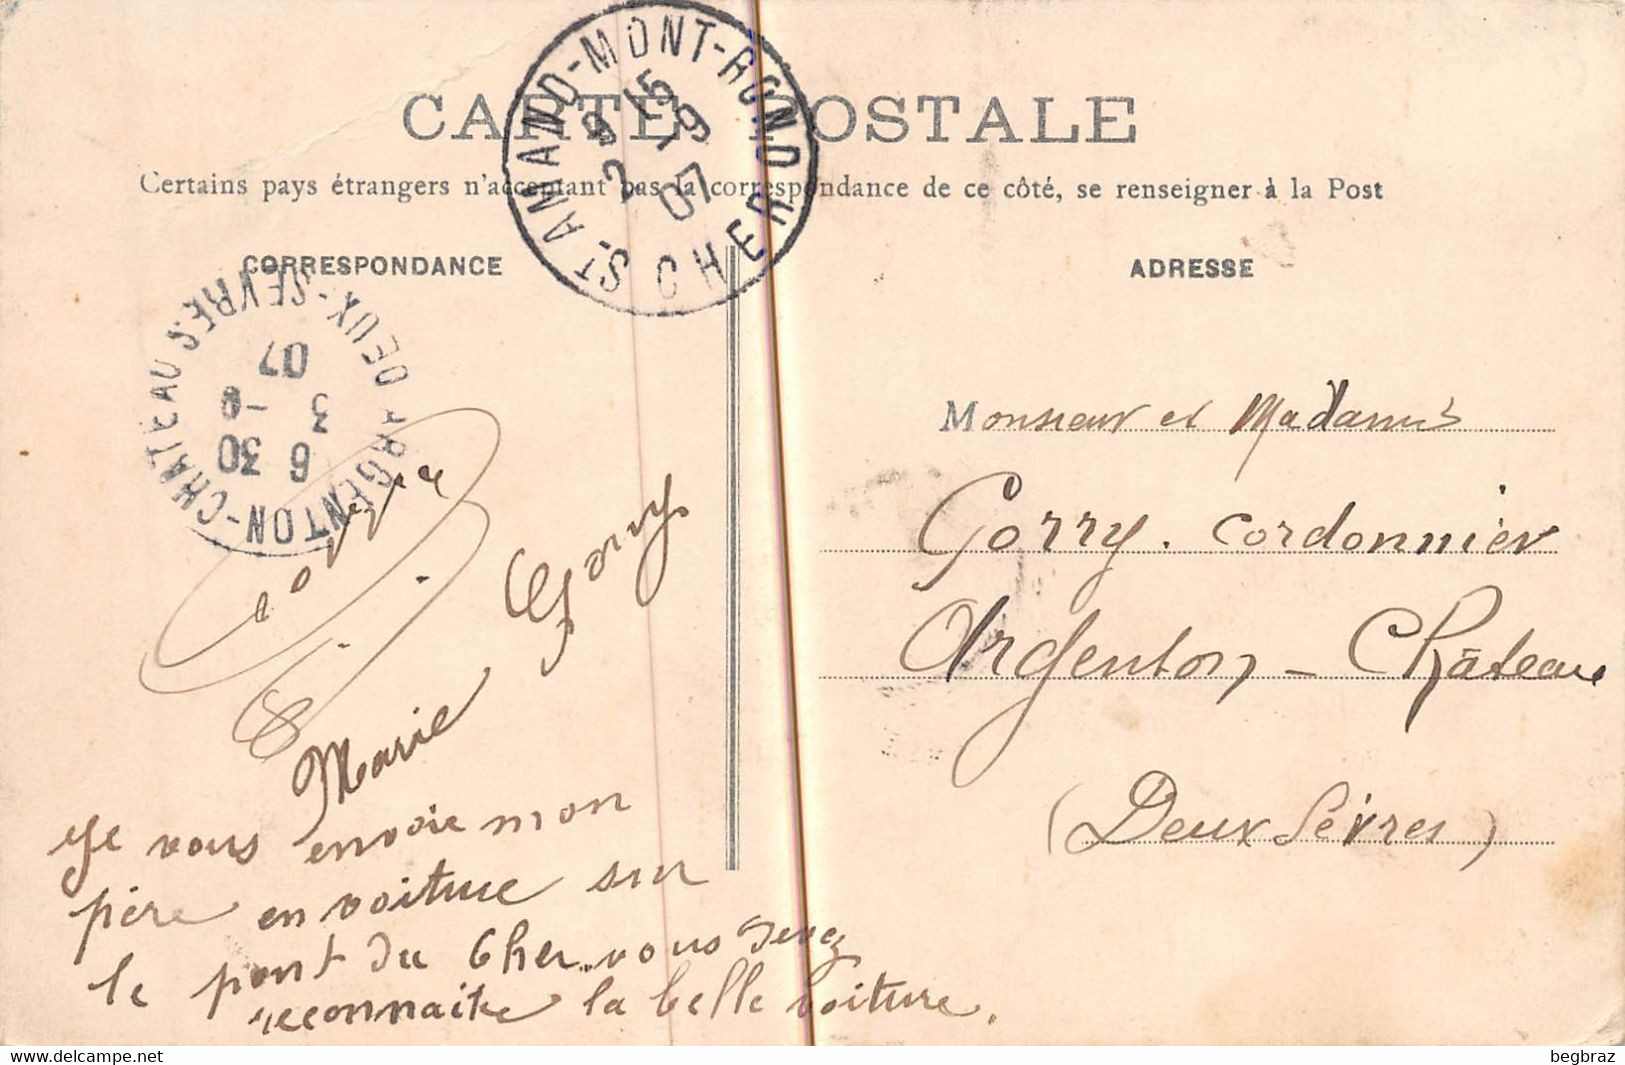 CARTE POSTALE
Certains pays étrangers n'acceptant pas la correspondance de ce côté, se renseigner à la Post
CORRESPONDANCE
ADRESSE
ST-AMAND-MONT-ROND
CHER
2-9
07
ARGENTON-CHATEAU
DEUX-SEVRES
6 30
3 -9
07
Monsieur et Madame
Gorry. Cordonnier
Argenton-Château
(Deux Sèvres)
Marie Gorry
Je vous envoie mon
père en voiture sur
le pont du Cher. vous devez
reconnaitre la belle voiture.
begbraz